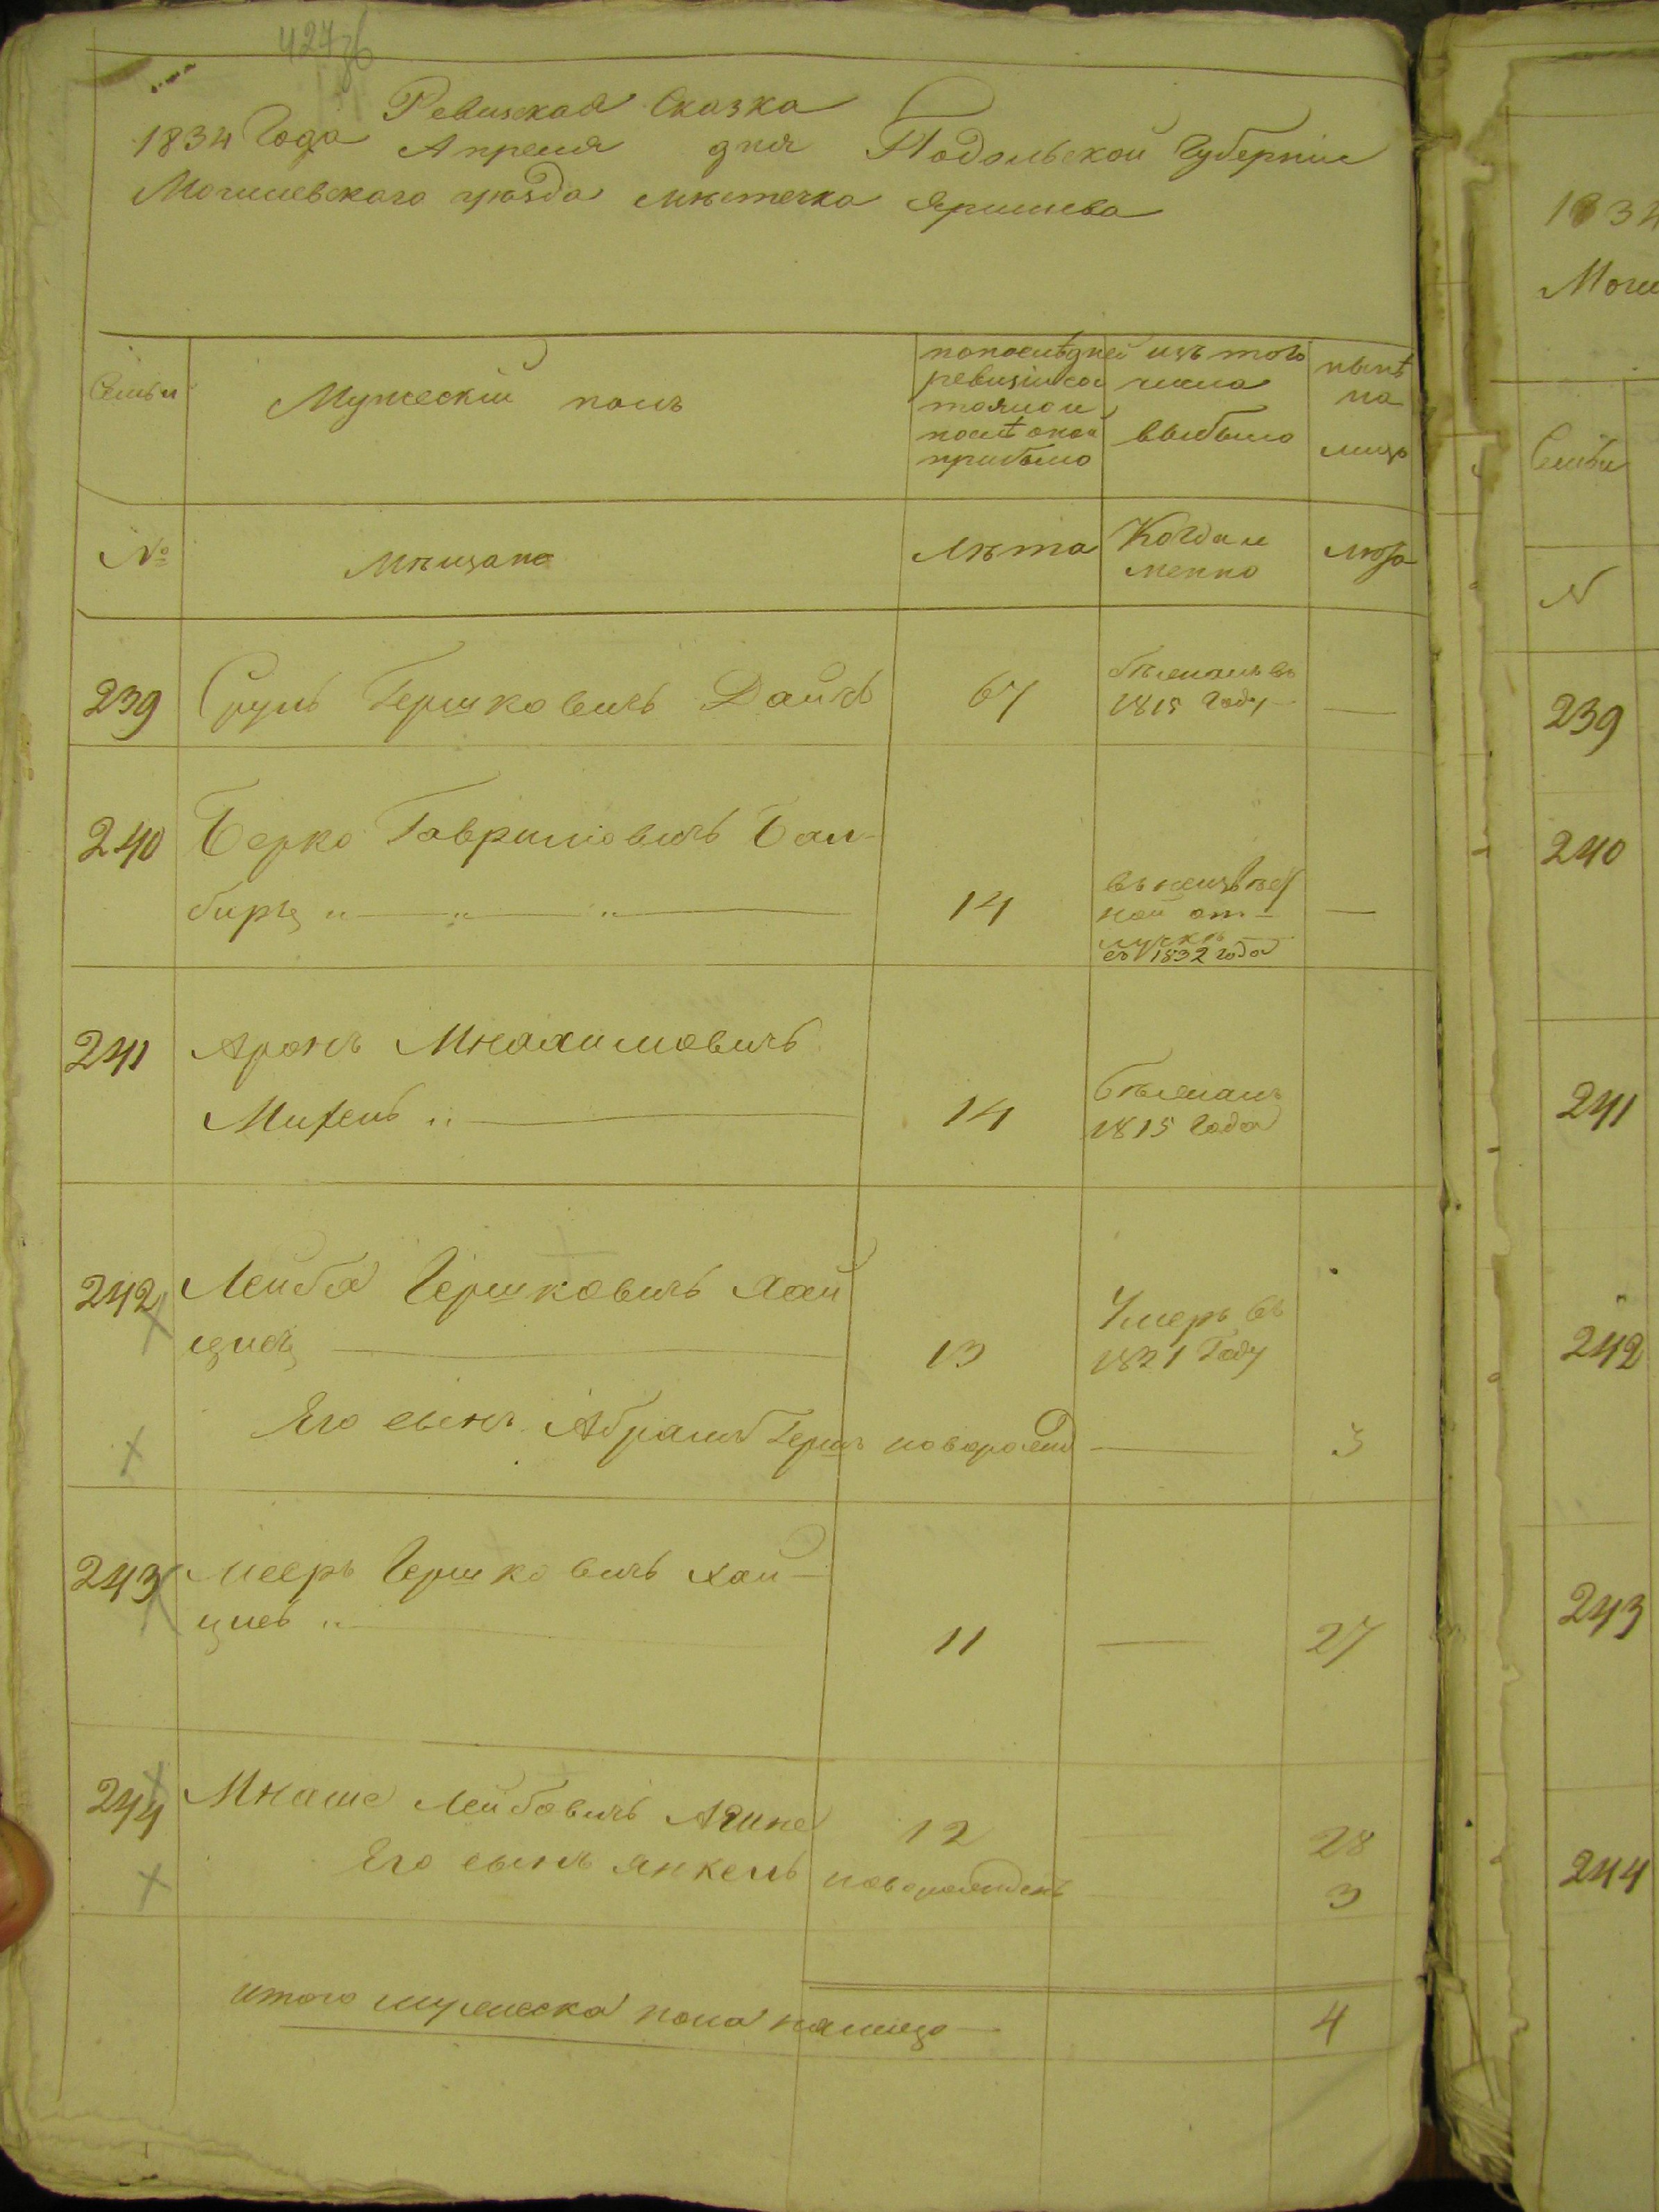 427 об
Ревизская Сказка
1834 Года Апреля дня Подольской Губернии
Могилевского уѣзда мѣстечка Яришева
Семьи
Мужескій полъ
по послѣдней
ревизіи со
тояло и
послѣ оной
прибыло
изъ того
числа
выбыло
нынѣ
на
лицо
№
мѣщане
Лѣта
Когда и
менно
лѣта
239 Сруль Гершковичъ Дайчъ 67
бѣжалъ въ
1815 Году —
240 Берко Гавриловичъ Бал-
биръ 14
въ неизвѣс
ной от-
лучкѣ
съ 1832 года
241 Аронъ Мнахимовичъ
14
бѣжалъ
1815 Года
242 Лейба Гершковичъ Хай
13
Умеръ въ
1821 Году
Его сынъ Абрамъ Гершъ новорожд — 3
243 Мееръ Гершковичъ Хай-
11 — 27
244 Мнаше Лейбовичъ 12 — 28
Его сынъ Янкель новорожденъ — 3
итого мужеска пола налицо — 4
1834
Моги
Семьи
N
239
240
241
242
243
244